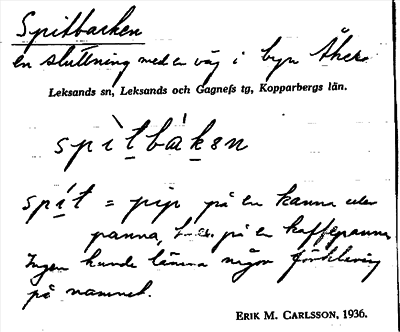 Spitbacken
en sluttning med en väg i byn Åker
Leksands sn, Leksands och Gagnefs tg, Kopparbergs län.
spìtbákən
spit = pip på en kanna eller
panna, t. ex. på en kaffepanna
Ingen kunde lämna någon förklaring
på namnet.
ERIK M. CARLSSON, 1936.